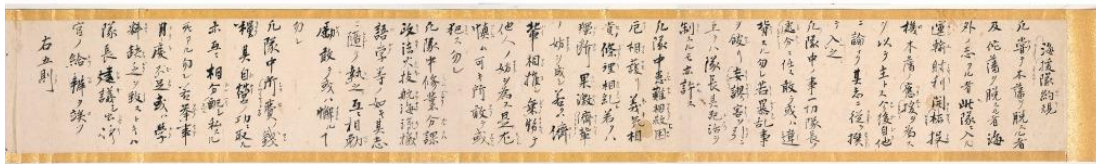 海援隊約規
凡嘗テ本藩ヲ脱スル者
及佗藩ヲ脱スル者海
外ノ志アル者此隊ニ入ル
運輸射利開柘投
機本藩ノ應援ヲ為ス
ヲ以テ主トス今後自他
ニ論ナク其志ニ從テ撰
テ入之
凡隊中ノ事一切隊長ノ
處分ニ任ス敢テ或ハ違
背スル勿レ若暴乱事
ヲ破リ妄謬害ヲ引ニ
至テハ隊長其死活ヲ
制スルモ亦許ス
凡隊中患難相救困
厄相護リ義気相
責條理相糺若クハ
獨断果激儕輩
ノ妨ヲ成シ若クハ儕
輩相推シ乗勢テ
他人ノ妨ヲ為ス是尤
慎ム可キ所敢テ或
犯ス勿レ
凡隊中修業分課
政法火技航海汽機
語学等ノ如キ其志
ニ隨テ執之互ニ相勉
勵敢テ或ハ懈ルコト
勿レ
凡隊中所費ノ銭
糧其自營ノ功ニ取ル
亦互ニ相分配シ私スル
所アル勿レ若挙事
用度不足或ハ学
料缺乏ヲ致ストキハ
隊長建議シ出碕
官ノ給辨ヲ竢ツ
右五則